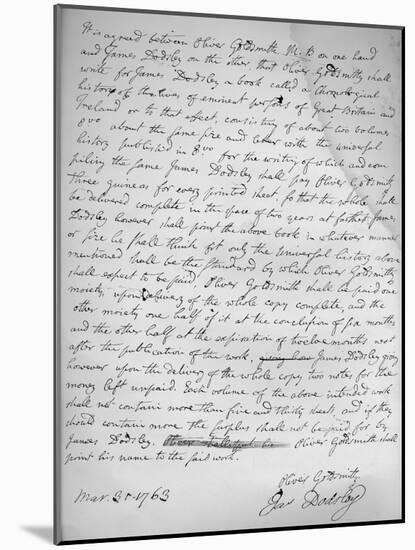 It is agreed between Oliver Goldsmith M.B on one hand
and James Dodsley on the other that Oliver Goldsmith shall
write for James Dodsley a book called a Chronological
history of the lives of eminent persons of Great Britain and
Ireland or to that effect, consisting of about two volumes
8vo about the same size and letter with the universal
history published in 8vo for the writing of which and com
piling the same James Dodsley shall pay Oliver Goldsmith
three guineas for every printed sheet. So that the whole shall
be delivered complete in the space of two years at farthest James
Dodsley however shall print the above book in whatever manner
or size he shall think fit only the Universal history above
mentioned shall be the standard by which Oliver Goldsmith
shall expect to be paid. Oliver Goldsmith shall be paid one
moiety upon delivery of the whole copy complete, and the
other moiety one half of it at the conclusion of six months
and the other half at the expiration of twelve months next
after the publication of the work, James Dodsley giving
however upon the delivery of the whole copy two notes for the
money left unpaid. Each volume of the above intended work
shall not contain more than five and thirty sheets, and if they
should contain more the surplus shall not be paid for by
James Dodsley. Oliver Goldsmith shall
print his name to the said work.
Oliver Goldsmith
Mar. 31 1763 Jas Dodsley